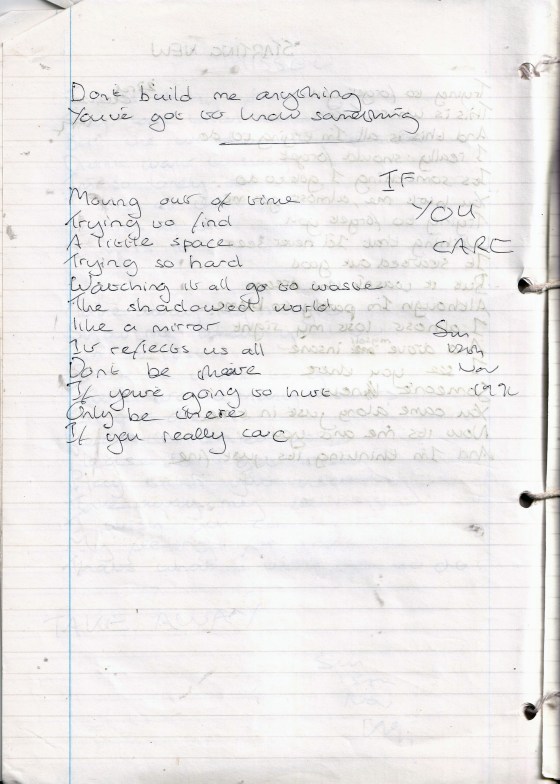 Dont build me anything
Youve got to know something
IF
YOU
CARE
Moving out of time
Trying to find
A little space
Trying so hard
Watching it all go to waste
The shadowed world
like a mirror
It reflects us all
Dont be there
If youre going to hurt
Only be there
If you really care
Sun
Nov